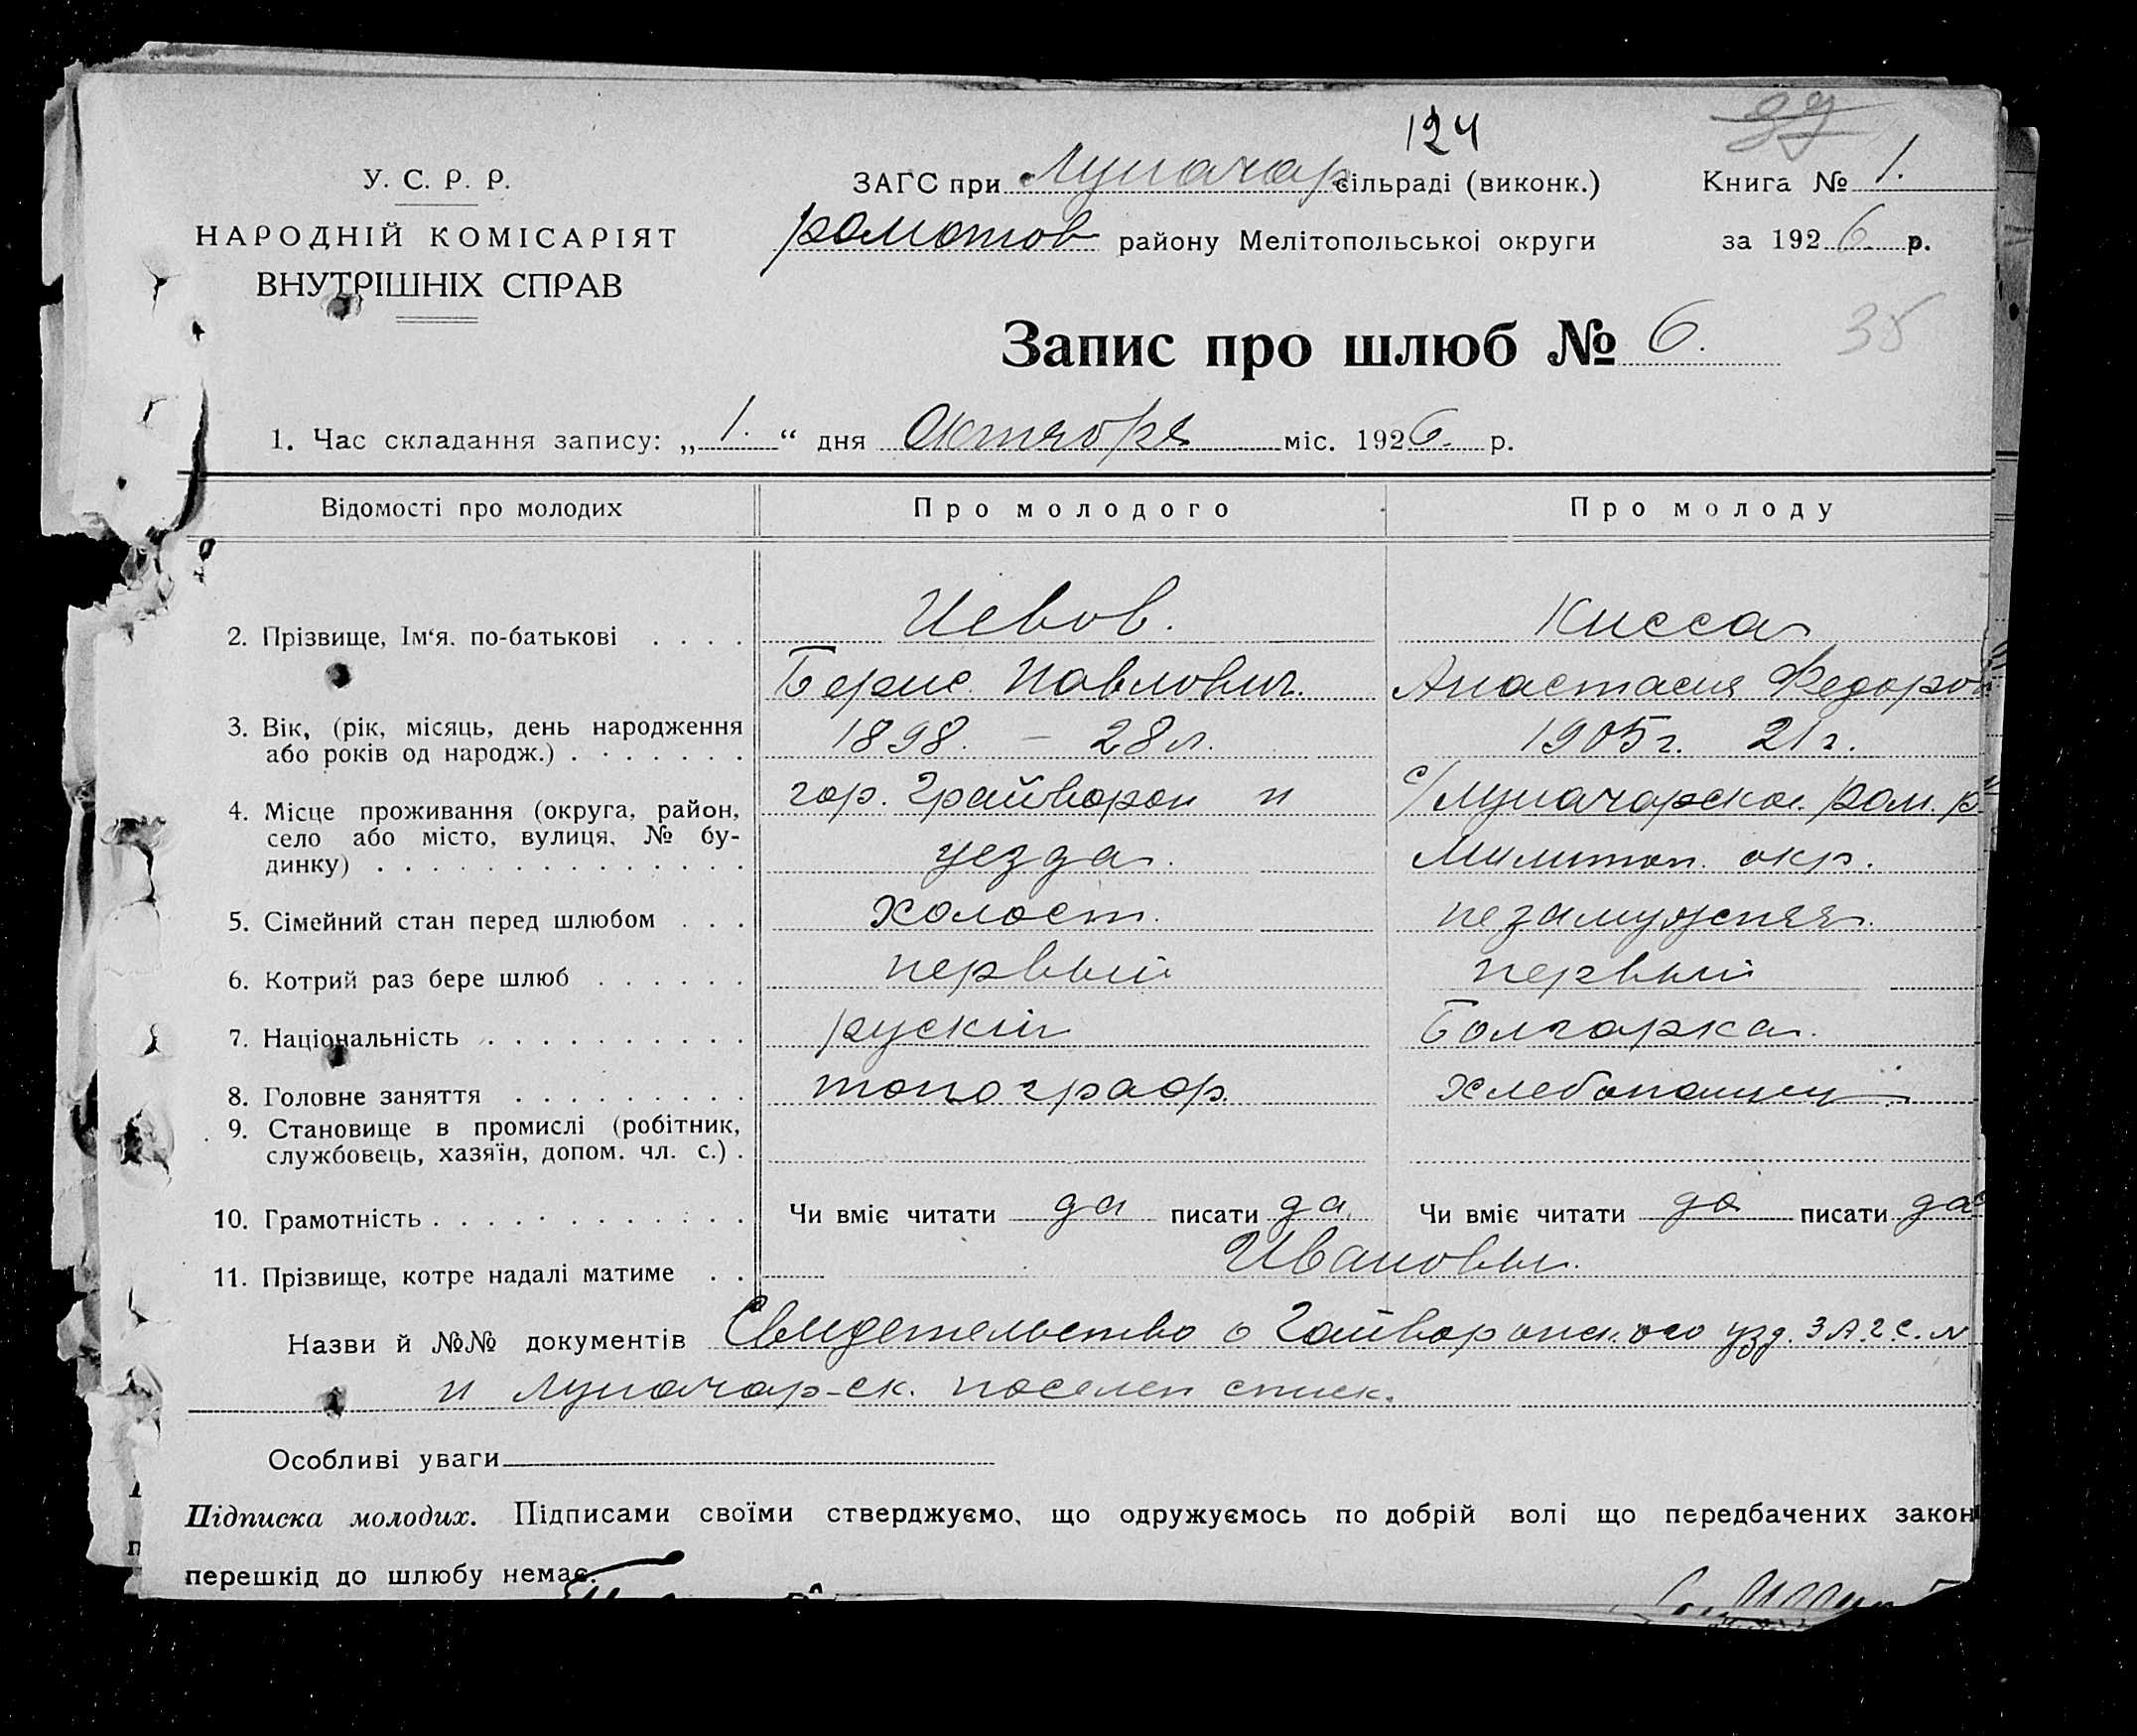 124
39
У. С. Р. Р.
НАРОДНІЙ КОМІСАРІЯТ
ВНУТРІШНІХ СПРАВ
ЗАГС при Луначар сільраді (виконк.)
району Мелітопольськоі округи
Книга № 1.
за 1926 р.
Запис про шлюб № 6.
35
1. Час складання запису: „1.“ дня Октября міс. 1926. р.
Відомості про молодих
Про молодого
Про молоду
2. Прізвище, Ім‘я. по-батькові . . . .
Кисса
Павлович.
Анастасия Федоров
3. Вік, (рік, місяць, день народження
або років од народж.) . . . . . . .
1898. – 28 л.
1905 г. 21 г.
4. Місце проживання (округа, район,
село або місто, вулиця, № бу-
динку) . . . . . . . . . . . . . .
гор. Грайворон и
уезда.
с/Луначарска. Ром. р.
Милитоп. окр.
5. Сімейний стан перед шлюбом . . .
холост.
незамужняя.
6. Котрий раз бере шлюб . . . . . .
первый
первый
7. Національність . . . . . . . . . .
руский
Болгарка.
8. Головне заняття . . . . . . . . .
топограф.
9. Становище в промислі (робітник,
службовець, хазяїн, допом. чл. с.) .
10. Грамотність . . . . . . . . . . . .
Чи вміє читати да писати да.
Чи вміє читати да писати да
11. Прізвище, котре надалі матиме . .
Ивановы.
Назви й №№ документів Свидетельство о узд. З.А.Г.С. №
и Луначар-ск. поселен списк.
Особливі уваги
Підписка молодих. Підписами своїми стверджуємо, що одружуємось по добрій волі що передбачених закон
перешкід до шлюбу немає.